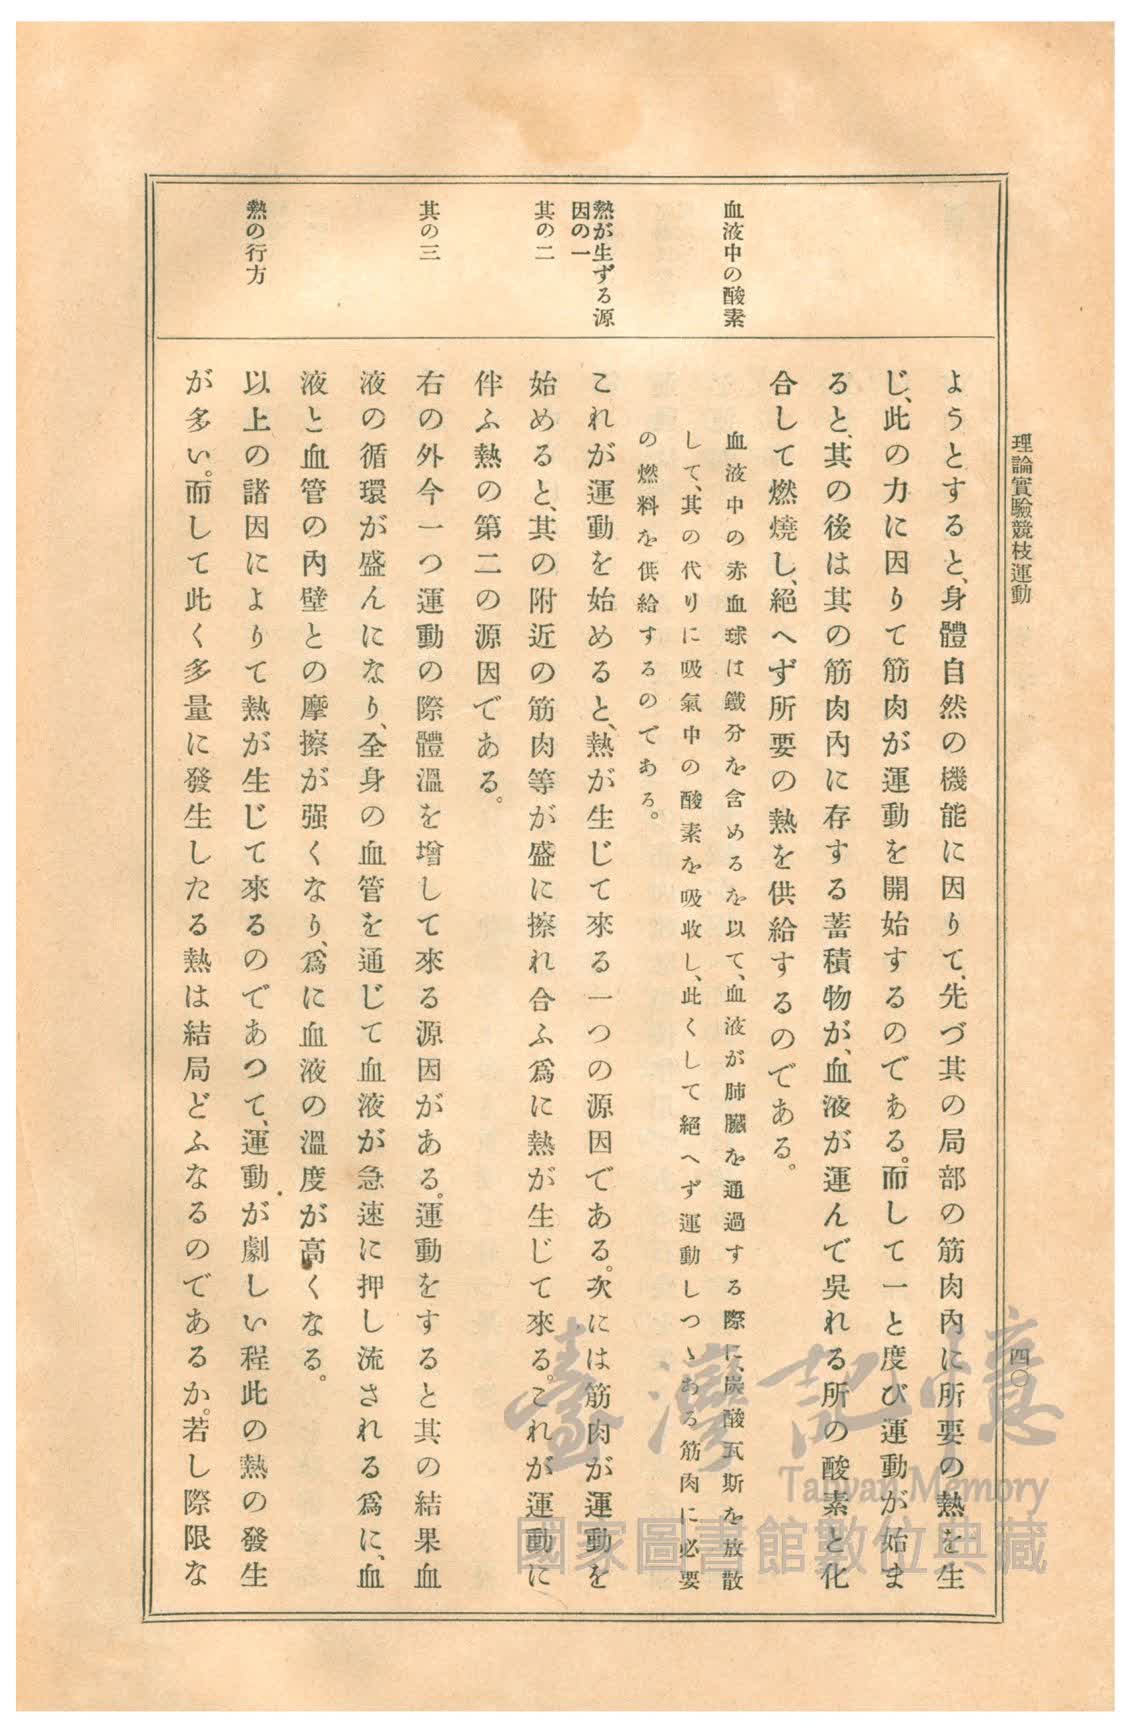 理論實驗競技運動
四〇
血液中の酸素
熱が生ずる源
因の一
其の二
其の三
熱の行方
ようとすると、身體自然の機能に因りて、先づ其の局部の筋肉內に所要の熱を生
じ、此の力に因りて筋肉が運動を開始するのである。而して一と度び運動が始ま
ると、其の後は其の筋肉內に存する蓄積物が、血液が運んで吳れる所の酸素と化
合して燃燒し、絕へず所要の熱を供給するのである。
血液中の赤血球は鐵分を含めるを以て、血液が肺臟を通過する際に、炭酸瓦斯を放散
して、其の代りに吸氣中の酸素を吸收し、此くして絕へず運動しつゝある筋肉に必要
の燃料を供給するのである。
これが運動を始めると、熱が生じて來る一つの源因である。次には筋肉が運動を
始めると、其の附近の筋肉等が盛に擦れ合ふ爲に熱が生じて來る。これが運動に
伴ふ熱の第二の源因である。
右の外今一つ運動の際體溫を增して來る源因がある。運動をすると其の結果血
液の循環が盛んになり、全身の血管を通じて血液が急速に押し流される爲に、血
液と血管の內壁との摩擦が强くなり、爲に血液の溫度が高くなる。
以上の諸因によりて熱が生じて來るのであつて、運動が劇しい程此の熱の發生
が多い。而して此く多量に發生したる熱は結局どふなるのであるか。若し際限な
臺灣記憶
Taiwan Memory
國家圖書館數位典藏